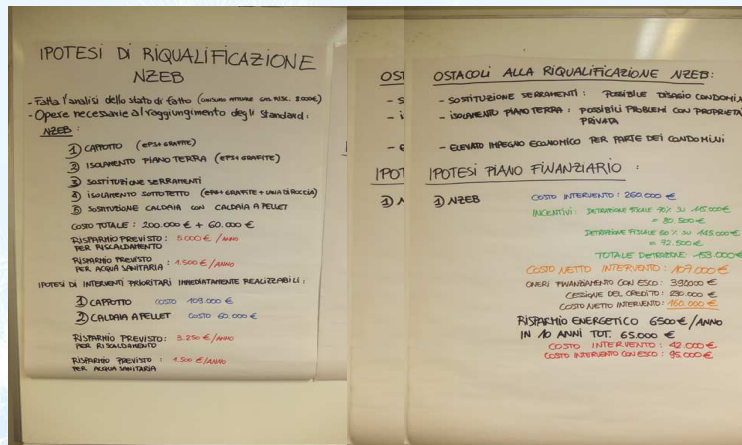 IPOTESI DI RIQUALIFICAZIONE
NZEB
- Fatta l'analisi dello stato di fatto (CONSUMO ATTUALE GAS RISC. 8.000€)
- Opere necessarie al raggiungimento degli Standard:
NZEB:
1) CAPPOTTO (EPS+GRAFITE)
2) ISOLAMENTO PIANO TERRA (EPS+GRAFITE)
3) SOSTITUZIONE SERRAMENTI
4) ISOLAMENTO SOTTOTETTO (EPS+GRAFITE + LANA DI ROCCIA)
5) SOSTITUZIONE CALDAIA CON CALDAIA A PELLET
COSTO TOTALE: 200.000€ + 60.000€
RISPARMIO PREVISTO: 5.000€/ANNO
PER RISCALDAMENTO
RISPARMIO PREVISTO: 1.500€/ANNO
PER ACQUA SANITARIA
IPOTESI DI INTERVENTI PRIORITARI IMMEDIATAMENTE REALIZZABILI:
1) CAPPOTTO COSTO 109.000€
2) CALDAIA A PELLET COSTO 60.000€
RISPARMIO PREVISTO: 3.250€/ANNO
PER RISCALDAMENTO
RISPARMIO PREVISTO: 1.500€/ANNO
PER ACQUA SANITARIA
OST
- S
- i
- E
IPOT
1) N
OSTACOLI ALLA RIQUALIFICAZIONE NZEB:
- SOSTITUZIONE SERRAMENTI: POSSIBILE DISAGIO CONDOMINI
- ISOLAMENTO PIANO TERRA: POSSIBILI PROBLEMI CON PROPRIETÀ
PRIVATA
- ELEVATO IMPEGNO ECONOMICO PER PARTE DEI CONDOMINI
IPOTESI PIANO FINANZIARIO:
1) NZEB COSTO INTERVENTO: 260.000€
INCENTIVI: DETRAZIONE FISCALE 70% SU 115.000€
= 80.500€
DETRAZIONE FISCALE 50% SU 145.000€
= 72.500€
TOTALE DETRAZIONE: 153.000€
COSTO NETTO INTERVENTO: 107.000€
ONERI FINANZIAMENTO CON ESCO: 390.000€
CESSIONE DEL CREDITO: 230.000€
COSTO NETTO INTERVENTO: 160.000€
RISPARMIO ENERGETICO 6500€/ANNO
IN 10 ANNI TOT. 65.000€
COSTO INTERVENTO: 42.000€
COSTO INTERVENTO CON ESCO: 95.000€